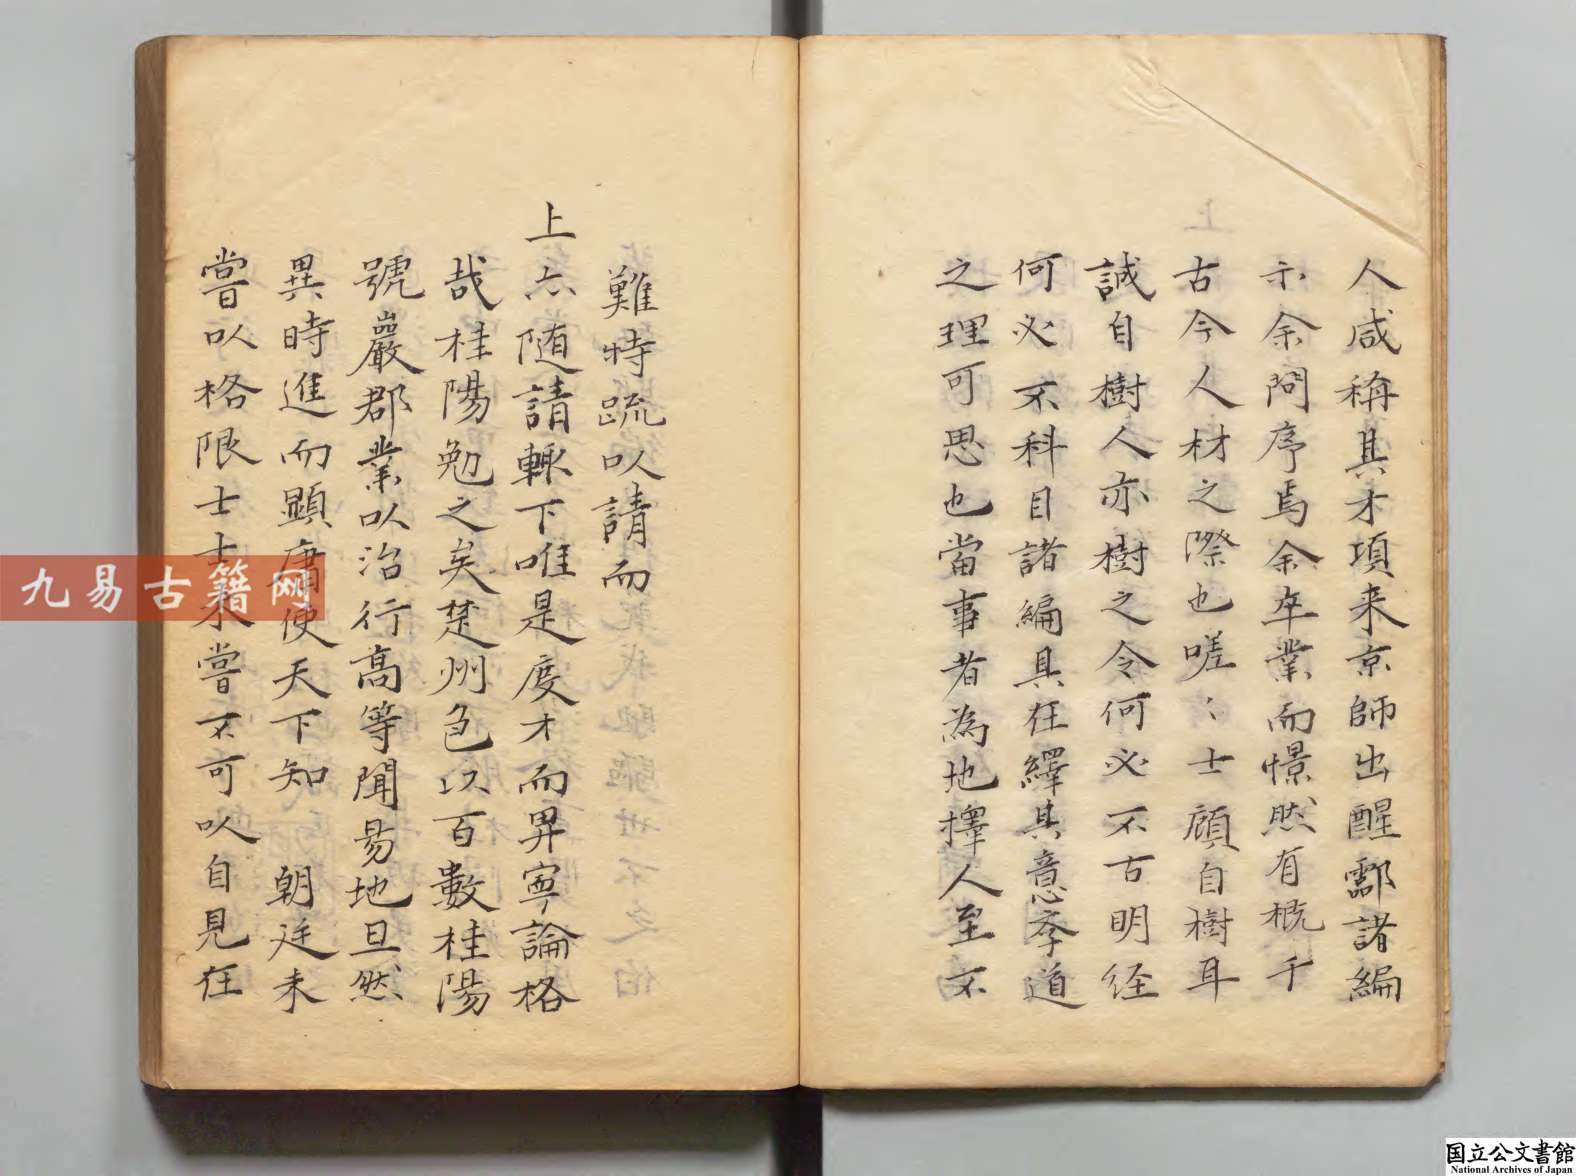 人咸稱其才項来京師出醒酃諸編
示余問序焉余卒業而憬然有概于
古今人材之際也嗟〻士顧自樹耳
誠自樹人亦樹之令何必不古明経
何必不科目諸編具在繹其意李道
之理可思也當事者為地擇人至不
難特疏以請而
上亦随請輙下唯是度才而畀寧論格
哉桂陽勉之矣楚州邑以百數桂陽
號巖郡業以治行髙等聞昜地旦然
異時進而顯庸使天下知 朝廷未
嘗以格限士士未嘗不可以自見在
九易古籍网
国立公文書館
National Archives of Japan